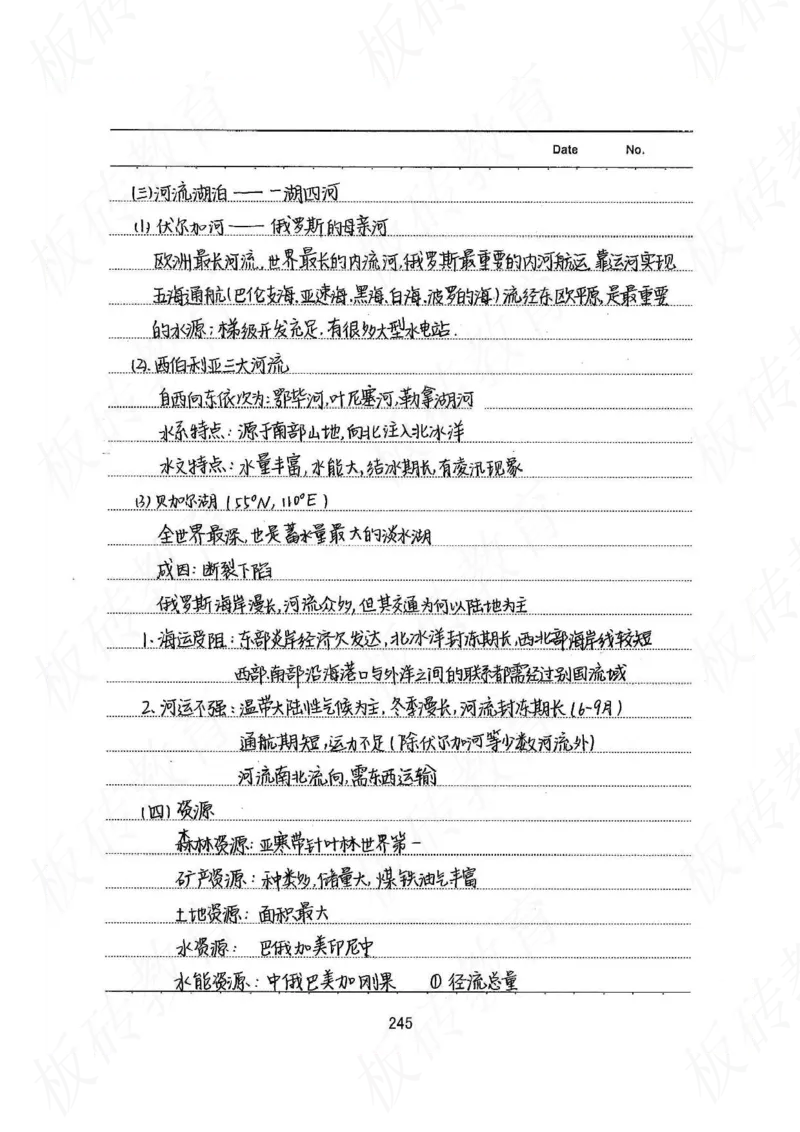 Date No.
(三)河流湖泊——一湖四河
(1) 伏尔加河——俄罗斯的母亲河
欧洲最长河流,世界最长的内流河,俄罗斯最重要的内河航运,靠运河实现
五海通航(巴伦支海,亚速海,黑海,白海,波罗的海)流经东欧平原,是最重要
的水源;梯级开发充足.有很多大型水电站.
(2).西伯利亚三大河流
自西向东依次为:鄂毕河,叶尼塞河,勒拿湖河
水系特点:源于南部山地,向北注入北冰洋
水文特点:水量丰富,水能大,结冰期长,有凌汛现象
(3)贝加尔湖(55°N, 110°E)
全世界最深,也是蓄水量最大的淡水湖
成因:断裂下陷
俄罗斯海岸漫长,河流众多,但其交通为何以陆地为主
1.海运受阻:东部岸经济欠发达,北冰洋封冻期长,西北部海岸线较短
西部.南部沿海港口与外洋之间的联系都需经过别国流域
2.河运不强:温带大陆性气候为主,冬季漫长,河流封冻期长(6-9月)
通航期短,运力不足(除伏尔加河等少数河流外)
河流南北流向,需东西运输
(四)资源
森林资源:亚寒带针叶林世界第一
矿产资源:种类多,储量大,煤铁油气丰富
土地资源:面积最大
水资源: 巴俄加美印尼中
水能资源:中俄巴美加刚果 ①径流总量
245
板砖教育